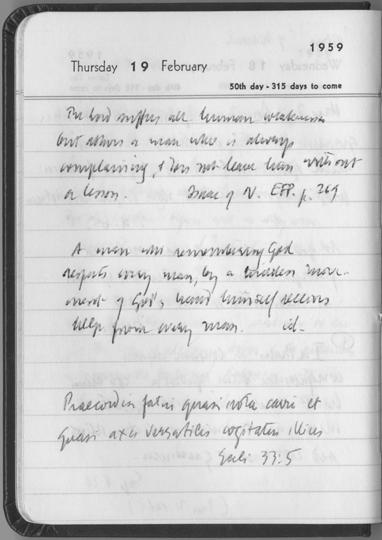 1959
Thursday 19 February
50th day - 315 days to come
The Lord suffers all human weaknesses
but abhors a man who is always
complaining, & does not leave him without
a lesson. Isaac of N. EFP. p. 269
A man who remembering God
respects every man, by a move-
ment of God's hand himself receives
help from every man. id-
Praecordia fatui quasi rota carri et
quasi axis versatilis cogitatus illius
Eccli 33:5